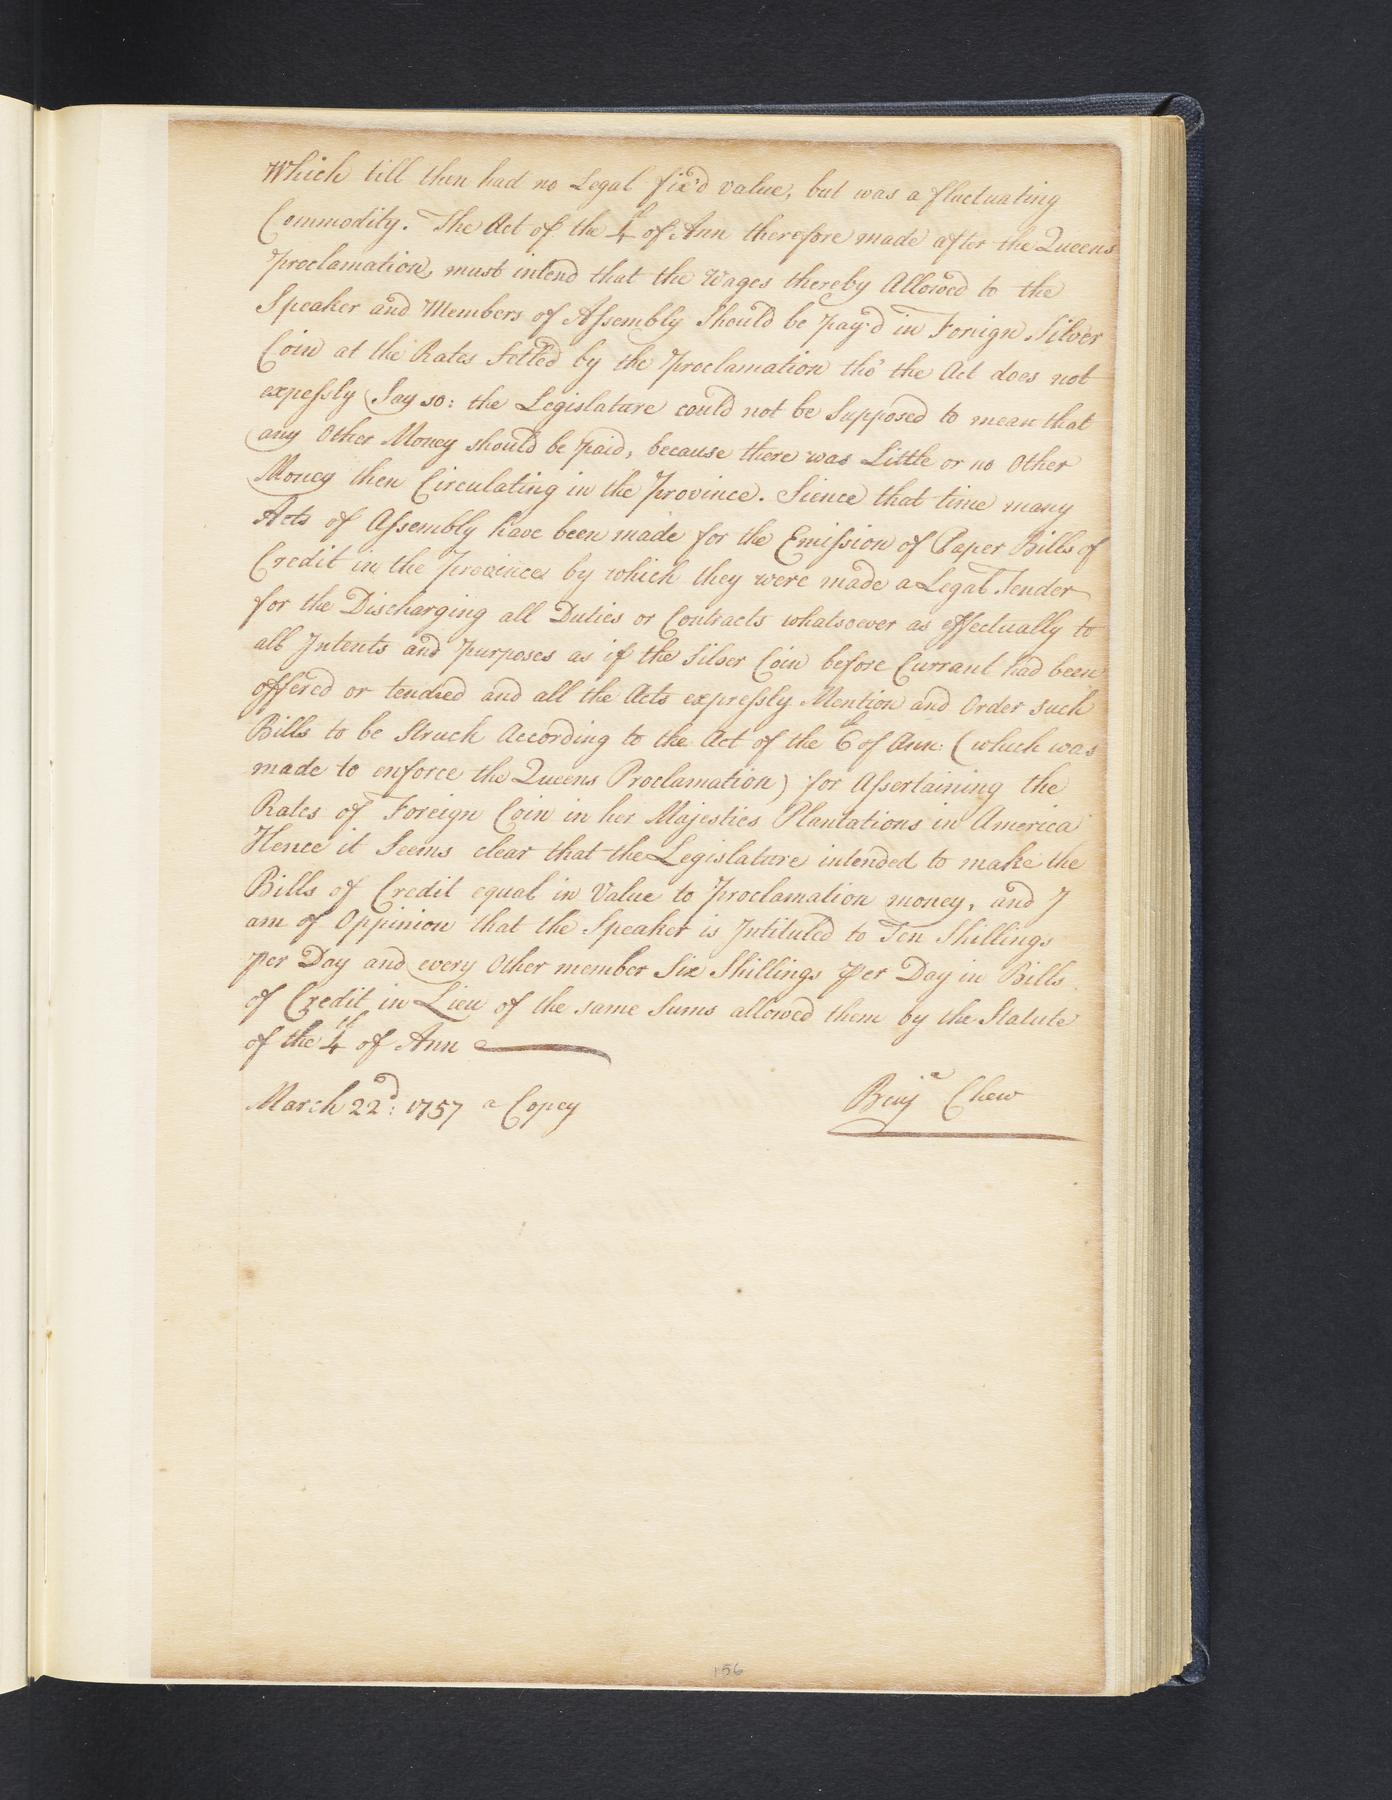 Which till then had no Legal fix'd value, but was a fluctuating
Commodity. The Act of the 4th of Ann therefore made after the Queens
proclamation, must intend that the Wages thereby Allowed to the
Speaker and Members of Assembly Should be pay'd in Foreign Silver
Coin at the Rates Setled by the proclamation tho' the Act does not
expessly Say so: the Legislature could not be Supposed to mean that
any Other Money should be paid, because there was Little or no Other
Money then Circulating in the province. Sience that time many
Acts of Assembly have been made for the Emission of Paper Bills of
Credit in the province by which they were made a Legal Tender
for the Discharging all Duties or Contracts whatsoever as effectually to
all Intents and purposes as if the Silver Coin before Currant had been
offered or tendred and all the Acts expressly Mention and Order such
Bills to be Struck According to the Act of the 6th of Ann: (which was
made to enforce the Queens Proclamation) for Assertaining the
Rates of Foreign Coin in her Majesties Plantations in America
Hence it Seems clear that the Legislature intended to make the
Bills of Credit equal in Value to proclamation money, and I
am of Oppinion that the Speaker is Intituled to Ten Shillings
per Day and every Other member Six Shillings per Day in Bills
of Credit in Lieu of the same Sums allowed them by the Statute
of the 4th of Ann
March 22d: 1757 a Copey Benja Chew
156